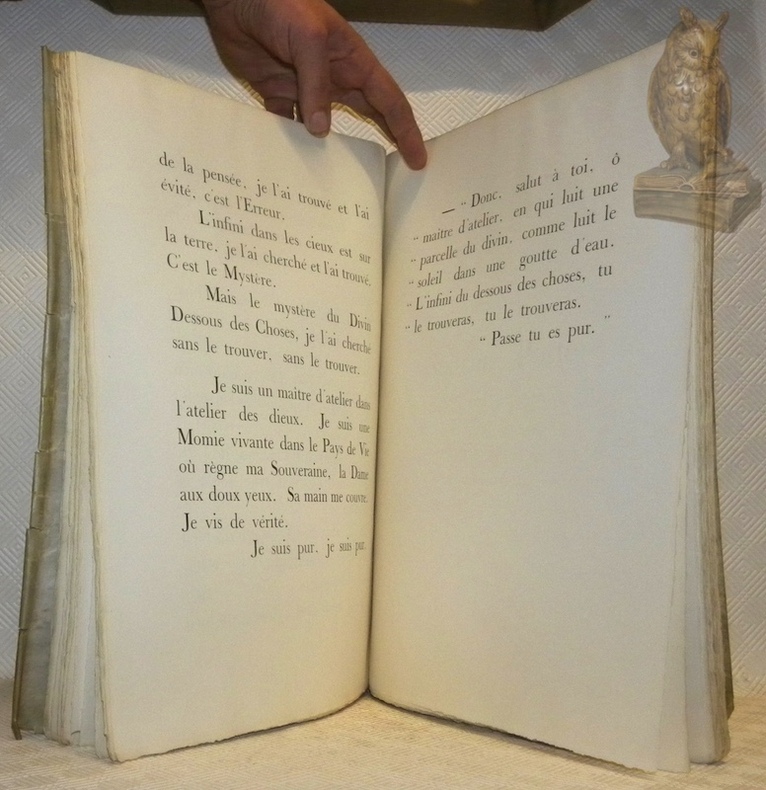 de la pensée, je l'ai trouvé et l'ai
évité, c'est l'Erreur.
L'infini dans les cieux est sur
la terre, je l'ai cherché et l'ai trouvé.
C'est le Mystère.
Mais le mystère du Divin
Dessous des Choses, je l'ai cherché
sans le trouver, sans le trouver.
Je suis un maitre d'atelier dans
l'atelier des dieux. Je suis une
Momie vivante dans le Pays de Vie
où règne ma Souveraine, la Dame
aux doux yeux. Sa main me couvre.
Je vis de vérité.
Je suis pur, je suis pur.
— “ Donc, salut à toi, ô
“ maitre d'atelier, en qui luit une
“ parcelle du divin, comme luit le
“ soleil dans une goutte d'eau.
“ L'infini du dessous des choses, tu
“ le trouveras, tu le trouveras.
“ Passe tu es pur. ”